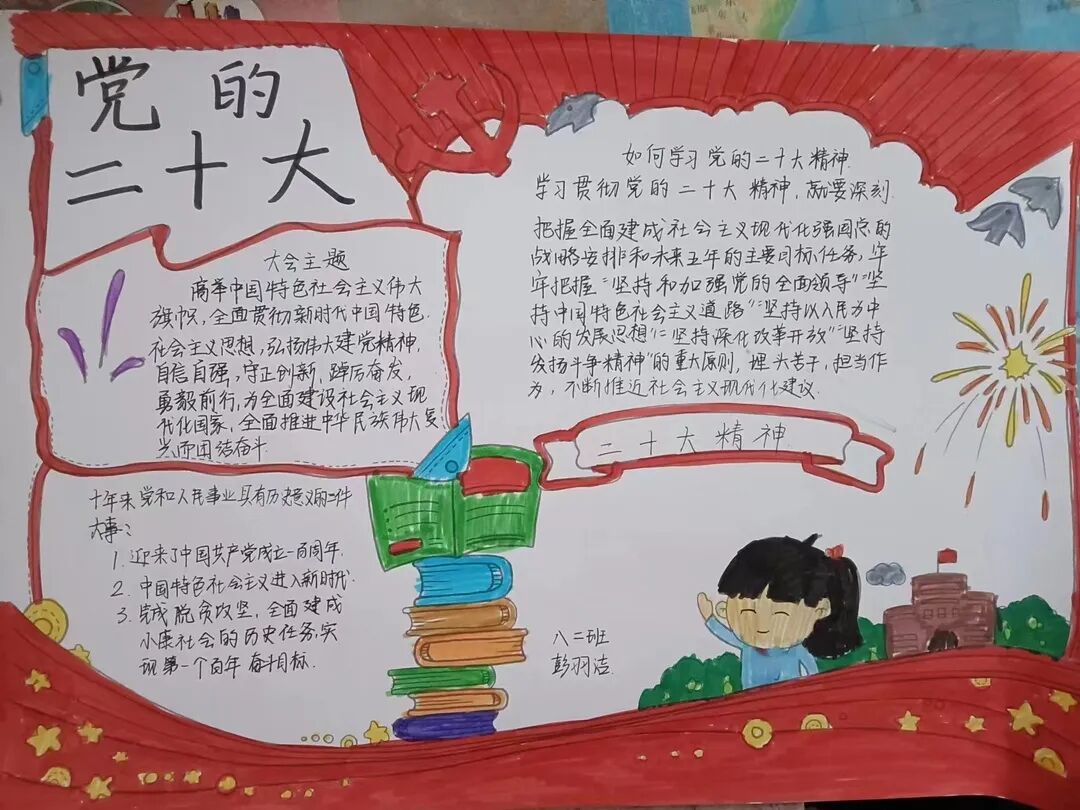 党的
二十大
大会主题
高举中国特色社会主义伟大
旗帜，全面贯彻新时代中国特色
社会主义思想，弘扬伟大建党精神，
自信自强，守正创新，踔厉奋发，
勇毅前行，为全面建设社会主义现
代化国家，全面推进中华民族伟大复
兴而团结奋斗
十年来党和人民事业具有历史意义的三件
大事：
1. 迎来了中国共产党成立一百周年.
2. 中国特色社会主义进入新时代.
3. 完成脱贫攻坚，全面建成
小康社会的历史任务，实
现第一个百年奋斗目标.
如何学习党的二十大精神.
学习贯彻党的二十大精神，就要深刻
把握全面建成社会主义现代化强国总的
战略安排和未来五年的主要目标任务，牢
牢把握“坚持和加强党的全面领导”“坚
持中国特色社会主义道路”“坚持以人民为中
心的发展思想”“坚持深化改革开放”“坚持
发扬斗争精神”的重大原则，埋头苦干，担当作
为，不断推近社会主义现代化建议.
二十大精神
八二班
彭羽洁